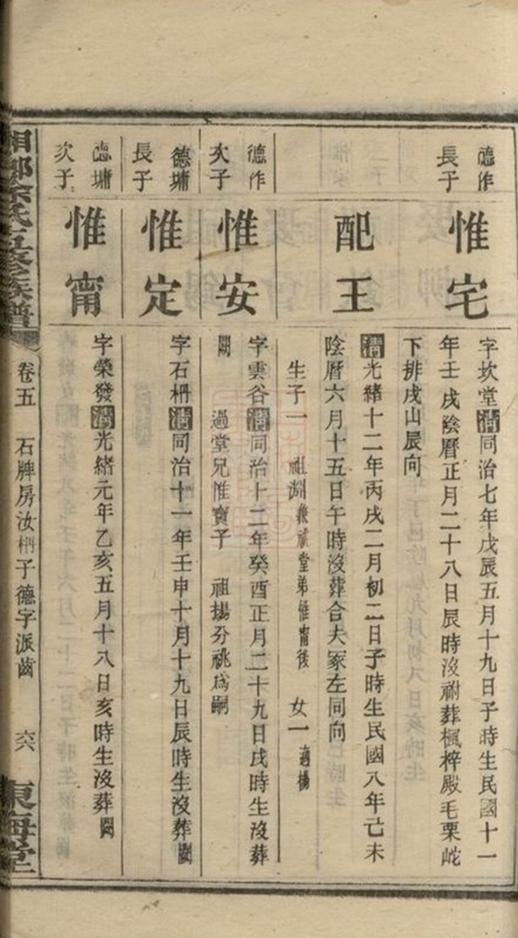 德作
長子
惟宅
字坎堂清同治七年戊辰五月十九日子時生民國十一
年壬戌陰曆正月二十八日辰時沒祔葬楓梓殿毛栗岮
下排戌山辰向
配王
清光緒十二年丙戌二月初二日子時生民國八年己未
陰曆六月十五日午時沒葬合夫冢左同向
生子一 祖淵兼祧堂弟惟甯後 女一適楊
德作
次子
惟安
字雲谷清同治十二年癸酉正月二十九日戌時生沒葬
闕 過堂兄惟寶子 祖揚分祧為嗣
德墉
長子
惟定
字石枬清同治十一年壬申十月十九日辰時生沒葬闕
德墉
次子
惟甯
字榮發清光緒元年乙亥五月十八日亥時生沒葬闕
湘鄉徐氏五修族譜
卷五 石牌房汝枬子德字派齒 六六
東海堂